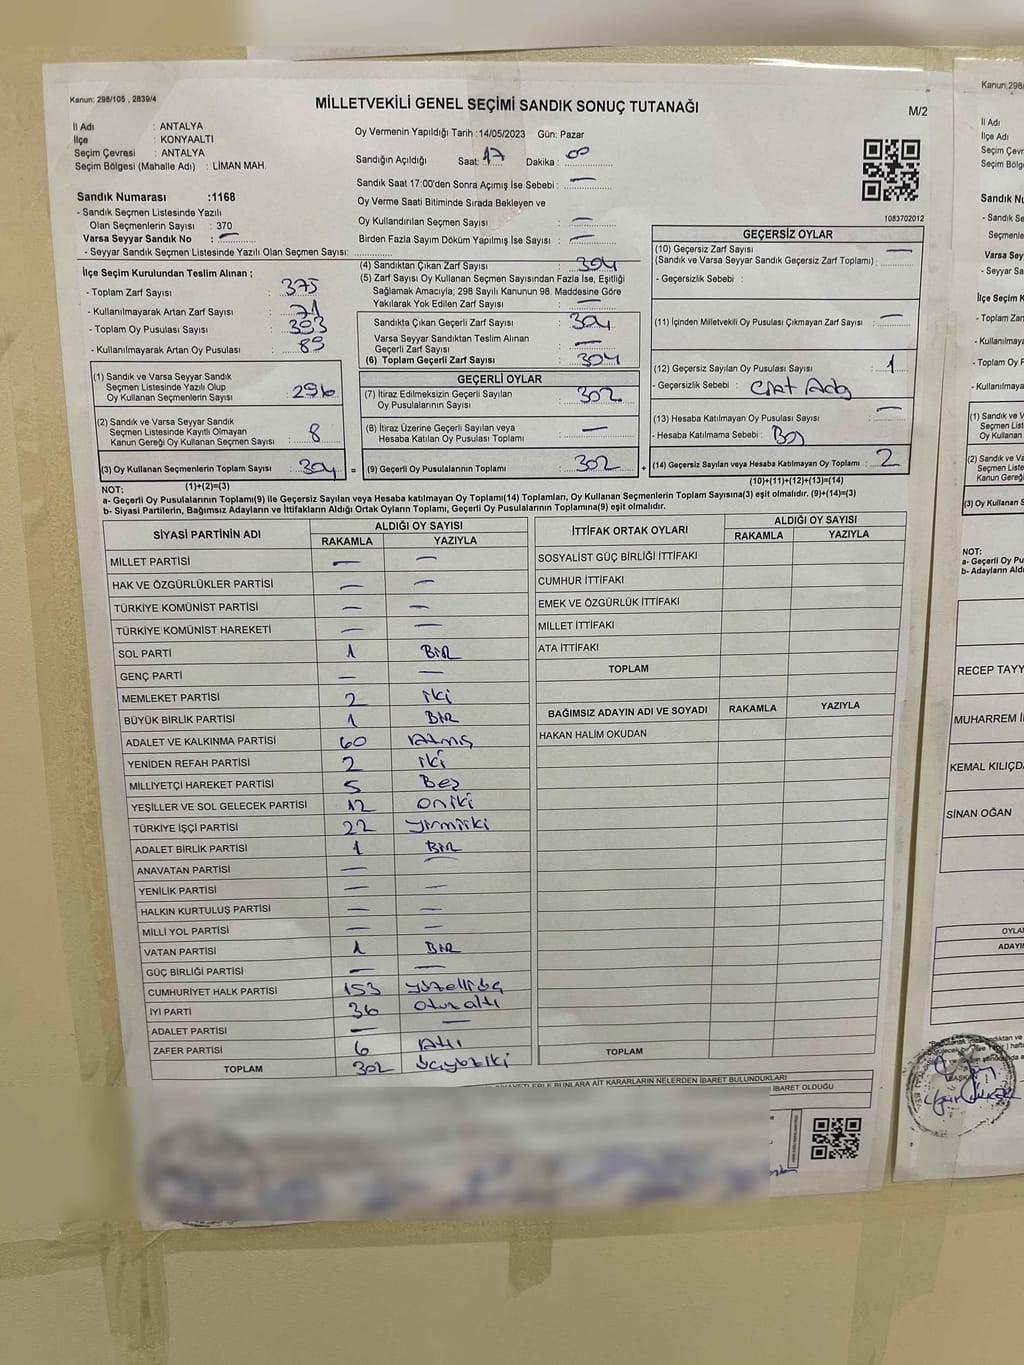 Kanun: 298/105 , 2839/4
MİLLETVEKİLİ GENEL SEÇİMİ SANDIK SONUÇ TUTANAĞI
M/2
İl Adı : ANTALYA
İlçe : KONYAALTI
Seçim Çevresi : ANTALYA
Seçim Bölgesi (Mahalle Adı) : LİMAN MAH.
Sandık Numarası :1168
- Sandık Seçmen Listesinde Yazılı
Olan Seçmenlerin Sayısı : 370
Varsa Seyyar Sandık No : —
- Seyyar Sandık Seçmen Listesinde Yazılı Olan Seçmen Sayısı:
Oy Vermenin Yapıldığı Tarih :14/05/2023 Gün: Pazar
Sandığın Açıldığı Saat: 17 Dakika : 00
Sandık Saat 17:00'den Sonra Açımış İse Sebebi : —
Oy Verme Saati Bitiminde Sırada Bekleyen ve
Oy Kullandırılan Seçmen Sayısı : —
Birden Fazla Sayım Döküm Yapılmış İse Sayısı : —
1083702012
İlçe Seçim Kurulundan Teslim Alınan ;
- Toplam Zarf Sayısı : 375
- Kullanılmayarak Artan Zarf Sayısı : 71
- Toplam Oy Pusulası Sayısı : 393
- Kullanılmayarak Artan Oy Pusulası : 89
(1) Sandık ve Varsa Seyyar Sandık
Seçmen Listesinde Yazılı Olup
Oy Kullanan Seçmenlerin Sayısı : 296
(2) Sandık ve Varsa Seyyar Sandık
Seçmen Listesinde Kayıtlı Olmayan
Kanun Gereği Oy Kullanan Seçmen Sayısı : 8
(3) Oy Kullanan Seçmenlerin Toplam Sayısı : 304
(1)+(2)=(3)
(4) Sandıktan Çıkan Zarf Sayısı : 304
(5) Zarf Sayısı Oy Kullanan Seçmen Sayısından Fazla İse, Eşitliği
Sağlamak Amacıyla; 298 Sayılı Kanunun 98. Maddesine Göre
Yakılarak Yok Edilen Zarf Sayısı : —
Sandıkta Çıkan Geçerli Zarf Sayısı : 304
Varsa Seyyar Sandıktan Teslim Alınan
Geçerli Zarf Sayısı : —
(6) Toplam Geçerli Zarf Sayısı : 304
GEÇERLİ OYLAR
(7) İtiraz Edilmeksizin Geçerli Sayılan
Oy Pusulalarının Sayısı : 302
(8) İtiraz Üzerine Geçerli Sayılan veya
Hesaba Katılan Oy Pusulası Toplamı : —
= (9) Geçerli Oy Pusulalarının Toplamı : 302
GEÇERSİZ OYLAR
(10) Geçersiz Zarf Sayısı —
(Sandık ve Varsa Seyyar Sandık Geçersiz Zarf Toplamı) :
- Geçersizlik Sebebi :
(11) İçinden Milletvekili Oy Pusulası Çıkmayan Zarf Sayısı : —
(12) Geçersiz Sayılan Oy Pusulası Sayısı : 1
- Geçersizlik Sebebi :
(13) Hesaba Katılmayan Oy Pusulası Sayısı : —
- Hesaba Katılmama Sebebi : Boş
+ (14) Geçersiz Sayılan veya Hesaba Katılmayan Oy Toplamı : 2
(10)+(11)+(12)+(13)=(14)
NOT:
a- Geçerli Oy Pusulalarının Toplamı(9) ile Geçersiz Sayılan veya Hesaba katılmayan Oy Toplamı(14) Toplamları, Oy Kullanan Seçmenlerin Toplam Sayısına(3) eşit olmalıdır. (9)+(14)=(3)
b- Siyasi Partilerin, Bağımsız Adayların ve İttifakların Aldığı Oyların Toplamı, Geçerli Oy Pusulalarının Toplamına(9) eşit olmalıdır.
SİYASİ PARTİNİN ADI ALDIĞI OY SAYISI
RAKAMLA YAZIYLA
MİLLET PARTİSİ — —
HAK VE ÖZGÜRLÜKLER PARTİSİ — —
TÜRKİYE KOMÜNİST PARTİSİ — —
TÜRKİYE KOMÜNİST HAREKETİ — —
SOL PARTİ 1 BİR
GENÇ PARTİ — —
MEMLEKET PARTİSİ 2 iki
BÜYÜK BİRLİK PARTİSİ 1 BİR
ADALET VE KALKINMA PARTİSİ 60 Altmış
YENİDEN REFAH PARTİSİ 2 iki
MİLLİYETÇİ HAREKET PARTİSİ 5 Beş
YEŞİLLER VE SOL GELECEK PARTİSİ 12 oniki
TÜRKİYE İŞÇİ PARTİSİ 22 yirmiiki
ADALET BİRLİK PARTİSİ 1 BİR
ANAVATAN PARTİSİ — —
YENİLİK PARTİSİ — —
HALKIN KURTULUŞ PARTİSİ — —
MİLLİ YOL PARTİSİ — —
VATAN PARTİSİ 1 BİR
GÜÇ BİRLİĞİ PARTİSİ — —
CUMHURİYET HALK PARTİSİ 153 yüzelliüç
İYİ PARTİ 36 otuzaltı
ADALET PARTİSİ — —
ZAFER PARTİSİ 6 Altı
TOPLAM 302 üçyüziki
İTTİFAK ORTAK OYLARI ALDIĞI OY SAYISI
RAKAMLA YAZIYLA
SOSYALİST GÜÇ BİRLİĞİ İTTİFAKI
CUMHUR İTTİFAKI
EMEK VE ÖZGÜRLÜK İTTİFAKI
MİLLET İTTİFAKI
ATA İTTİFAKI
TOPLAM
BAĞIMSIZ ADAYIN ADI VE SOYADI RAKAMLA YAZIYLA
HAKAN HALİM OKUDAN
TOPLAM
BUNLARA AİT KARARLARIN NELERDEN İBARET BULUNDUKLARI
İBARET OLDUĞU
Kanun: 298
İl Adı
İlçe Adı
Seçim Çevr
Seçim Bölg
Sandık N
- Sandık Se
Seçmenle
Varsa Sey
- Seyyar Sa
İlçe Seçim K
- Toplam Zar
- Kullanılmaya
- Toplam Oy P
- Kullanılmaya
(1) Sandık ve V
Seçmen List
Oy Kullanan
(2) Sandık ve Va
Seçmen Liste
Kanun Gereği
(3) Oy Kullanan S
NOT:
a- Geçerli Oy Pu
b- Adayların Aldı
RECEP TAYY
MUHARREM İ
KEMAL KILIÇD
SİNAN OĞAN
OYLA
ADAYI